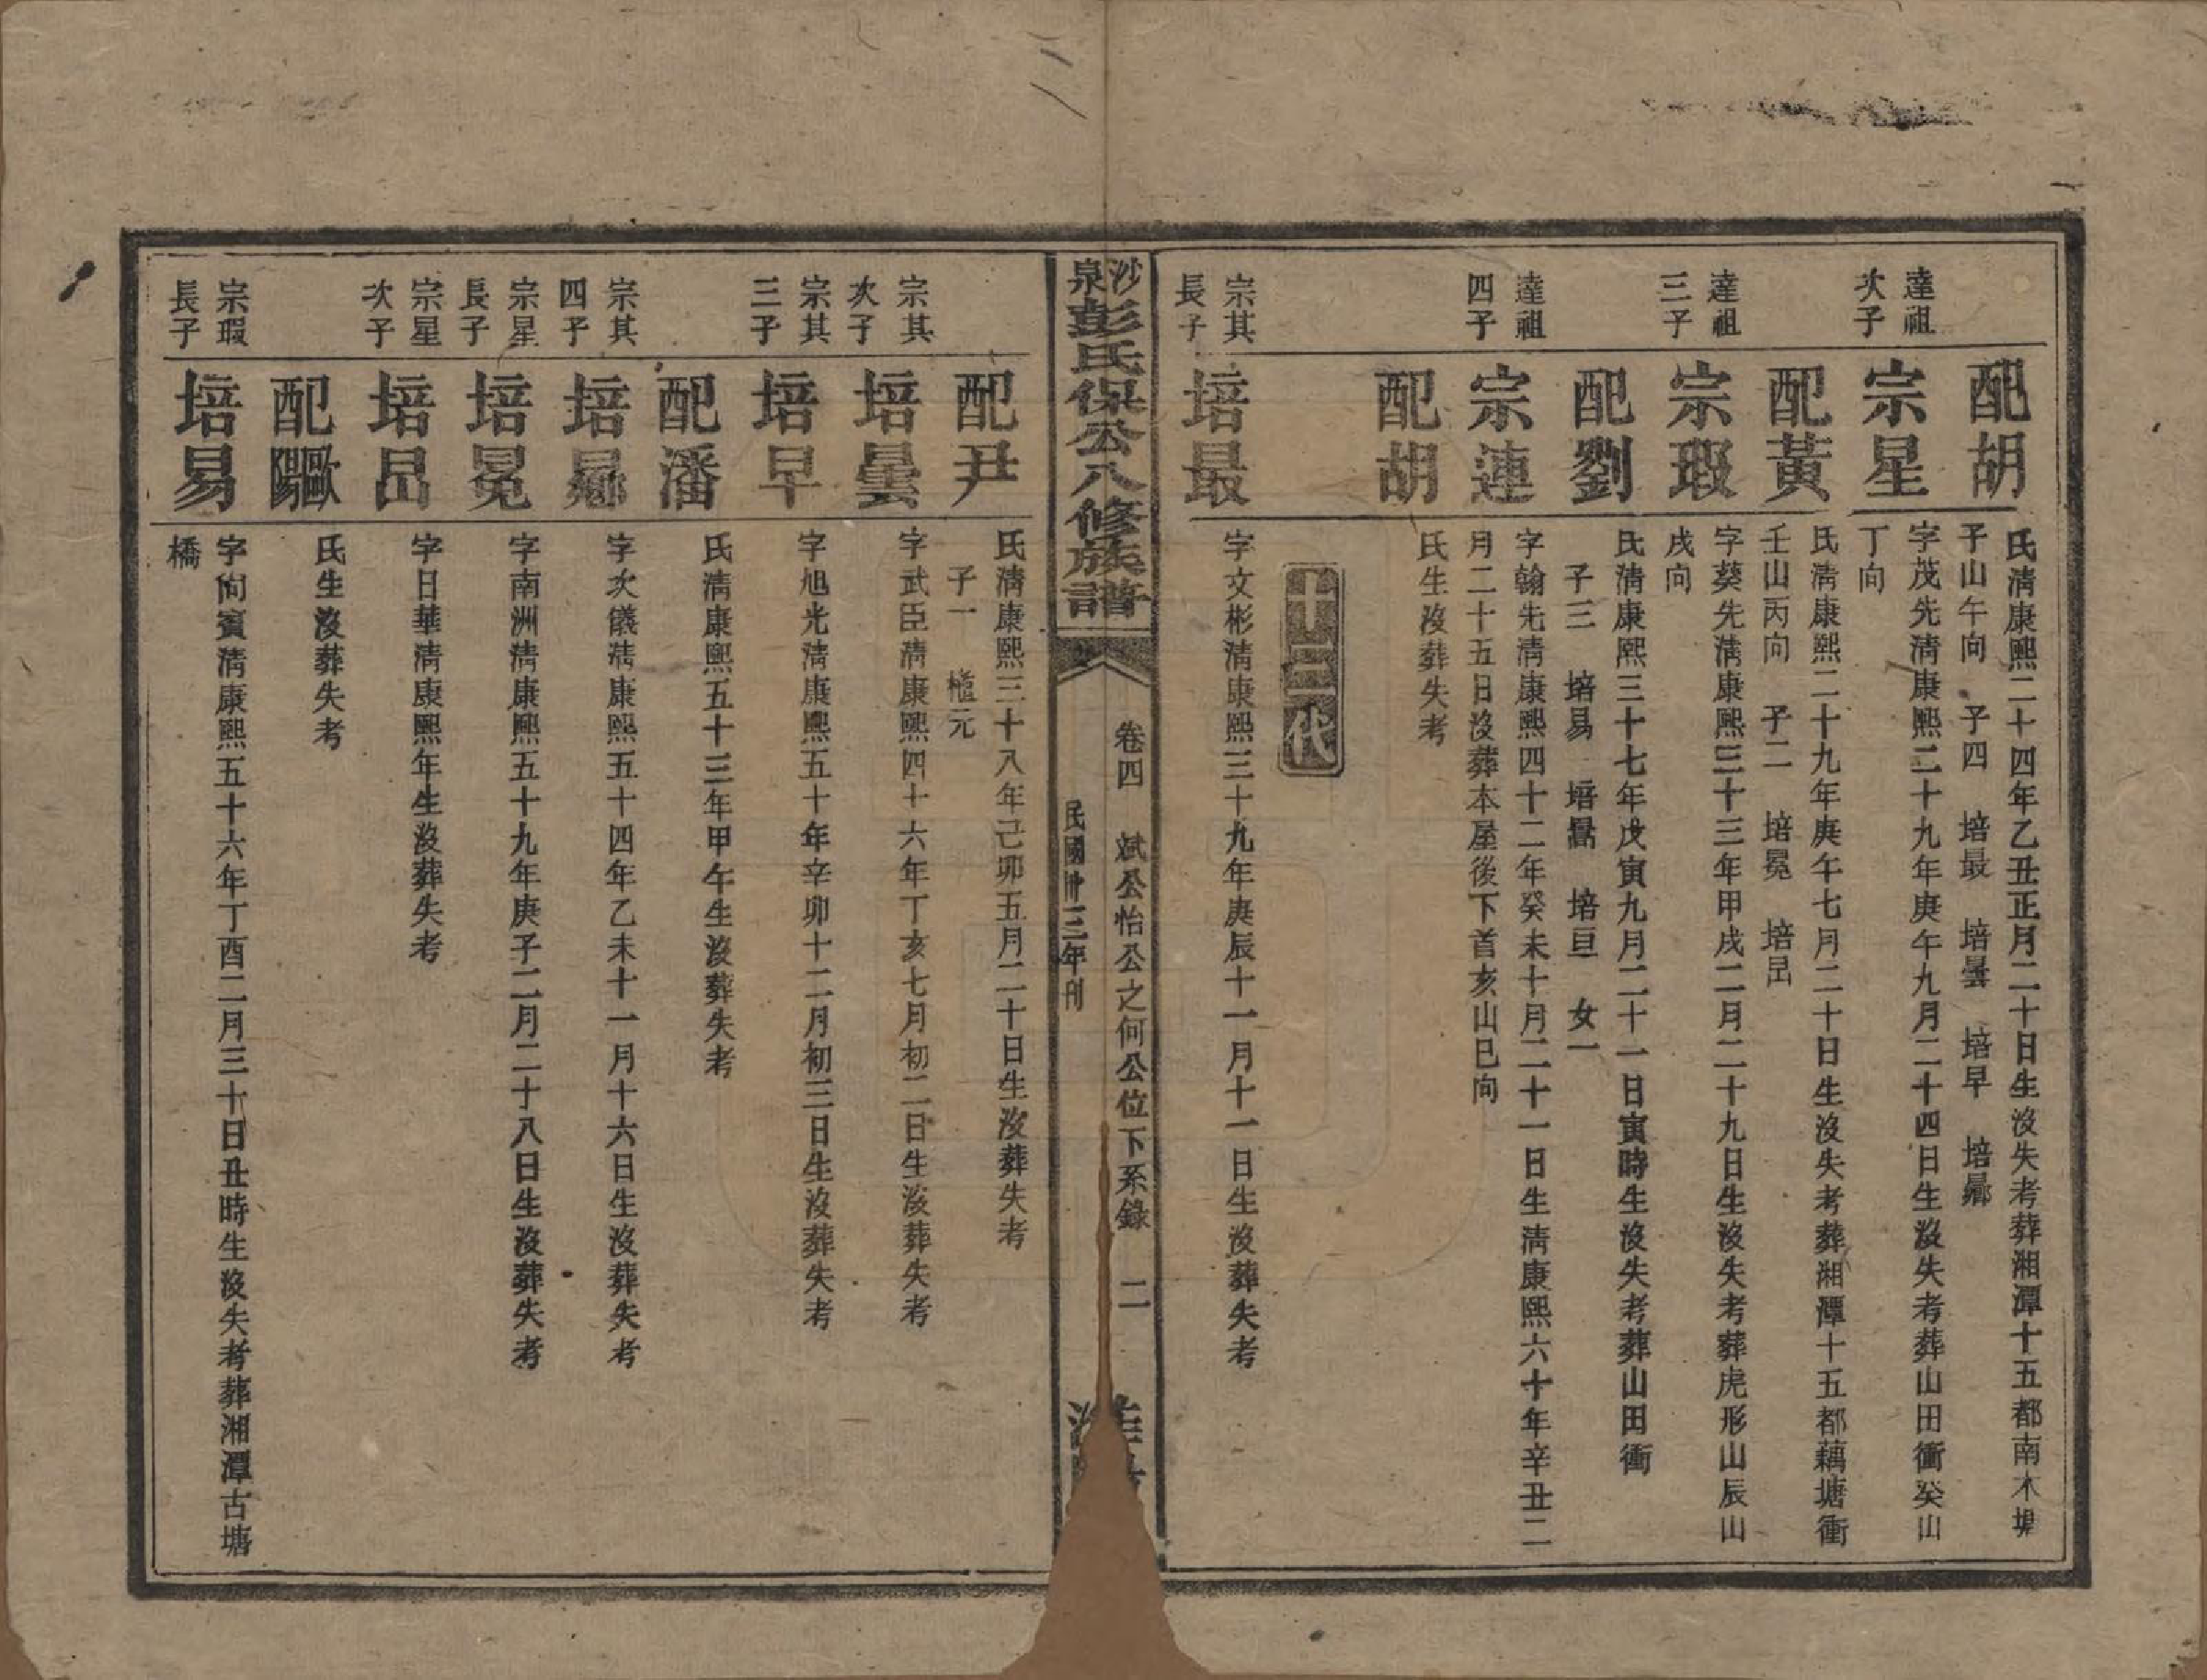 配胡
氏清康熙二十四年乙丑正月二十日生沒失考葬湘潭十五都南木堤
子山午向 子四 培最 培曇 培早 培曑
達祖
次子
宗星
字茂先清康熙二十九年庚午九月二十四日生沒失考葬山田衝癸山
丁向
配黃
氏清康熙二十九年庚午七月二十日生沒失考葬湘潭十五都藕塘衝
壬山丙向 子二 培冕 培昌
達祖
三子
宗瑕
字葵先清康熙三十三年甲戌二月二十九日生沒失考葬虎形山辰山
戌向
配劉
氏清康熙三十七年戊寅九月二十一日寅時生沒失考葬山田衝
子三 培易 培勗 培亘 女一
達祖
四子
宗連
字翰先清康熙四十二年癸未十月二十一日生清康熙六十年辛丑二
月二十五日沒葬本屋後下首亥山巳向
配胡
氏生沒葬失考
十二代
宗其
長子
培最
字文彬清康熙三十九年庚辰十一月十一日生沒葬失考
沙泉彭氏保公八修族譜
卷四 斌公怡公之何公位下系錄 二
民國卅三年刊
配尹
氏清康熙三十八年己卯五月二十日生沒葬失考
子一 權元
宗其
次子
培曇
字武臣清康熙四十六年丁亥七月初二日生沒葬失考
宗其
三子
培早
字旭光清康熙五十年辛卯十二月初三日生沒葬失考
配潘
氏清康熙五十三年甲午生沒葬失考
宗其
四子
培
字次儀清康熙五十四年乙未十一月十六日生沒葬失考
宗星
長子
培冕
字南洲清康熙五十九年庚子二月二十八日生沒葬失考
宗星
次子
培昌
字日華清康熙年生沒葬失考
配歐陽
氏生沒葬失考
宗瑕
長子
培易
字尚賓清康熙五十六年丁酉二月三十日丑時生沒失考葬湘潭古塘
橋